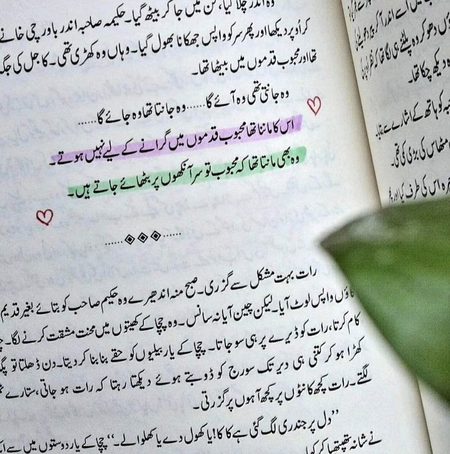 وہ اندر چلا گیا، صحن میں جا کر بیٹھ گیا۔ حکیمہ صاحبہ اندر باورچی خانے
کر اوپر دیکھا اور پھر سر کو واپس جھکانا بھول گیا۔ وہاں وہ کھڑی تھی۔ کاجل کی جگہ
تھا اور محبوب قدموں میں بیٹھا تھا۔
وہ جانتی تھی وہ آئے گا...... وہ جانتا تھا وہ جائے گا......
اس کا ماننا تھا محبوب قدموں میں گرانے کے لیے نہیں ہوتے۔
وہ بھی مانتا تھا کہ محبوب تو سر آنکھوں پر بٹھائے جاتے ہیں۔
رات بہت مشکل سے گزری۔ صبح منہ اندھیرے وہ حکیم صاحب کو بتائے بغیر قدیم
گاؤں واپس لوٹ آیا۔ لیکن چین آیا نہ سانس۔ وہ چچا کے کھیتوں میں محنت مشقت کرنے لگا۔
کام کرتا، رات کو ڈیرے پر ہی سو جاتا۔ چچا کے یار بیلیوں کو حقے بنا بنا کر دیتا۔ دن ڈھلتا تو
کھڑا ہو کر کتنی ہی دیر تک سورج کو ڈوبتے ہوئے دیکھتا رہتا کہ رات ہو جاتی، ستارے
لگتے۔ رات کچھ کانٹوں پر کچھ آہوں پر گزرتی۔
”دل پر جندری لگ گئی ہے کاکا! یا کھول دے یا کھلوا لے۔“ چچا کے یار دوستوں میں سے
نے شانہ تھپتھپا کر کہا۔